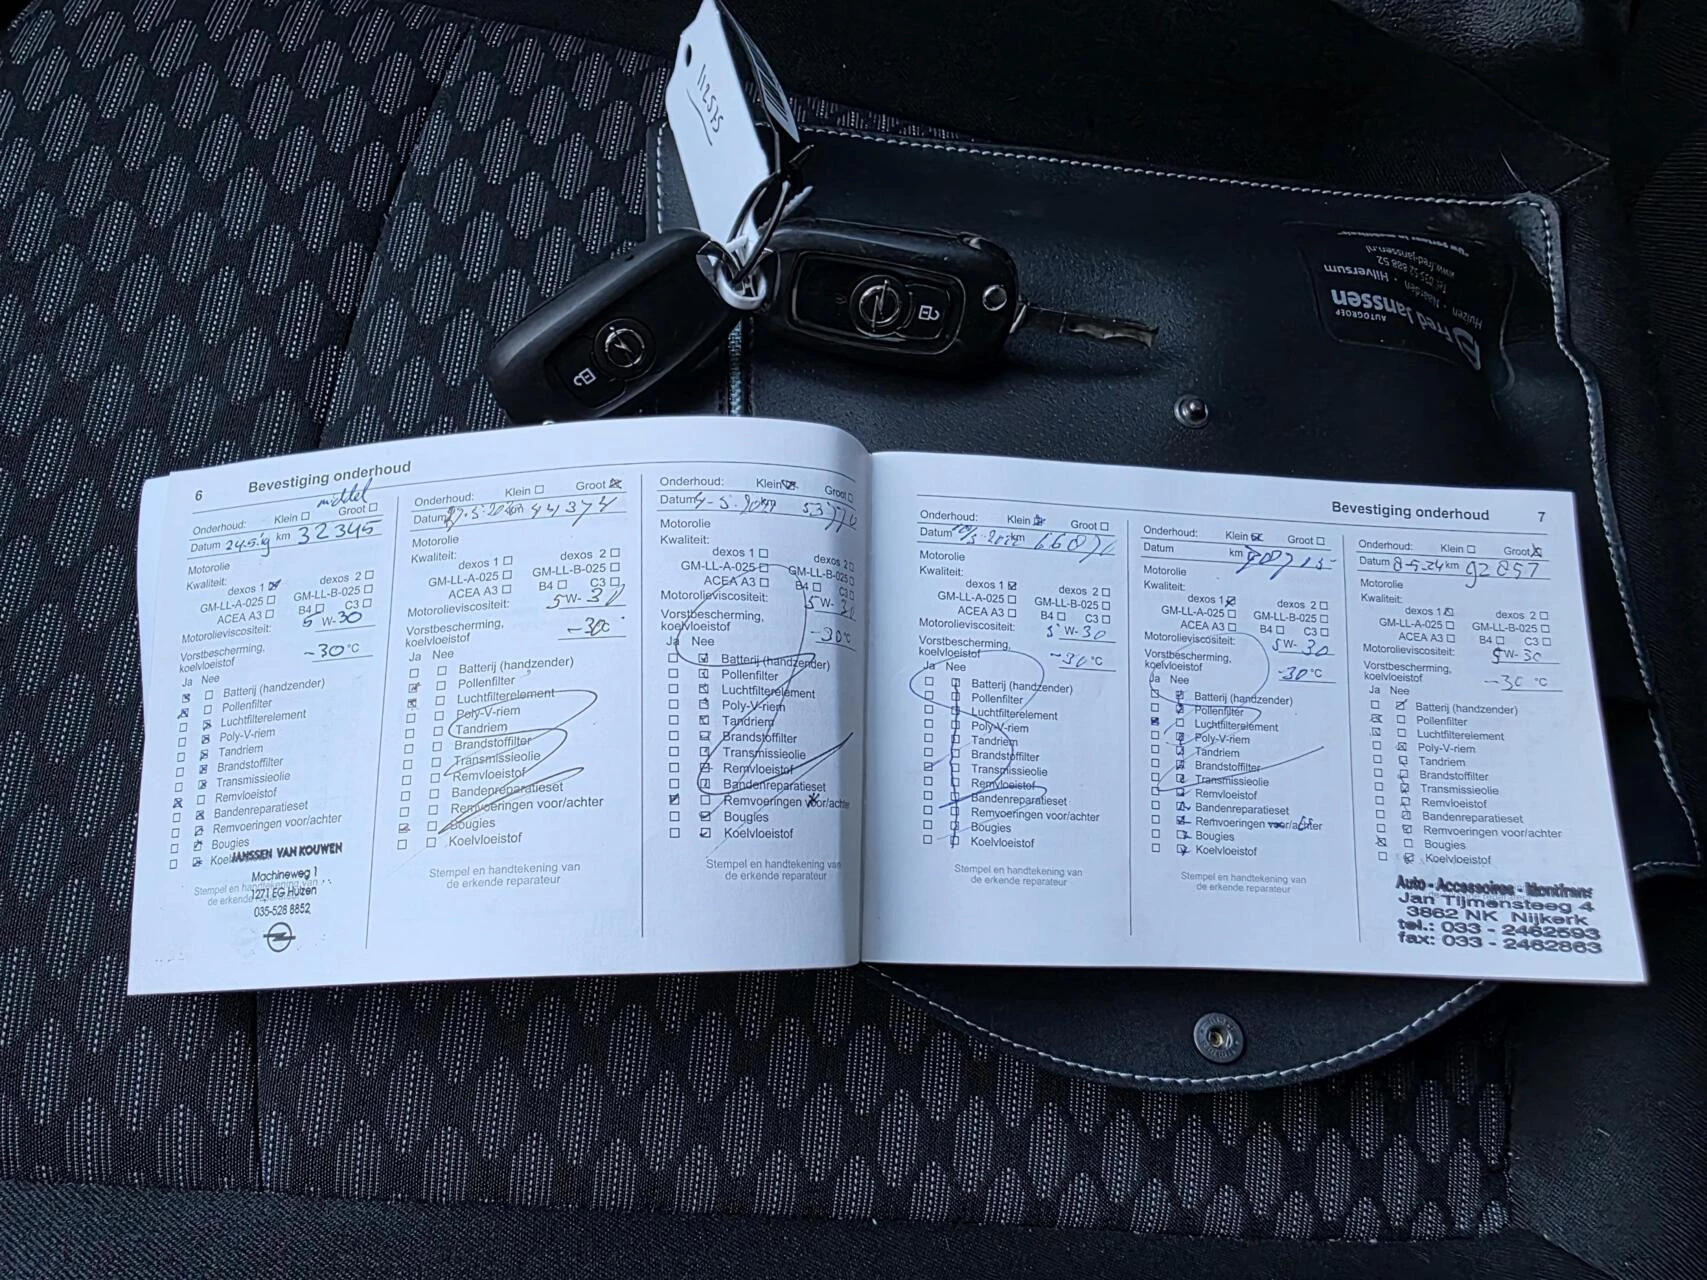 112575
AUTOGROEP
Fred Janssen
Huizen · Naarden · Hilversum
www.fred-janssen.nl
6 Bevestiging onderhoud
middel
Onderhoud: Klein Groot
Datum 24.5.19 km 32345
Motorolie
Kwaliteit:
dexos 1 dexos 2
GM-LL-A-025 GM-LL-B-025
ACEA A3 B4 C3
Motorolieviscositeit: 5 W-30
Vorstbescherming,
koelvloeistof -30 °C
Ja Nee
Batterij (handzender)
Pollenfilter
Luchtfilterelement
Poly-V-riem
Tandriem
Brandstoffilter
Transmissieolie
Remvloeistof
Bandenreparatieset
Remvoeringen voor/achter
Bougies
JANSSEN VAN KOUWEN
Machineweg 1
Stempel en handtekening van
1271 EG Huizen
de erkende
035-528 8852
Onderhoud: Klein Groot
Datum km 44374
Motorolie
Kwaliteit:
dexos 1 dexos 2
GM-LL-A-025 GM-LL-B-025
ACEA A3 B4 C3
Motorolieviscositeit: 5W-30
Vorstbescherming,
koelvloeistof -30c
Ja Nee
Batterij (handzender)
Pollenfilter
Luchtfilterelement
Poly-V-riem
Tandriem
Brandstoffilter
Transmissieolie
Remvloeistof
Bandenreparatieset
Remvoeringen voor/achter
Bougies
Koelvloeistof
Stempel en handtekening van
de erkende reparateur
Onderhoud: Klein Groot
Datum km
Motorolie
Kwaliteit:
dexos 1 dexos 2
GM-LL-A-025 GM-LL-B-025
ACEA A3 B4 C3
Motorolieviscositeit: 5W-30
Vorstbescherming,
koelvloeistof -30°C
Ja Nee
Batterij (handzender)
Pollenfilter
Luchtfilterelement
Poly-V-riem
Tandriem
Brandstoffilter
Transmissieolie
Remvloeistof
Bandenreparatieset
Remvoeringen voor/achter
Bougies
Koelvloeistof
Stempel en handtekening van
de erkende reparateur
Bevestiging onderhoud 7
Onderhoud: Klein Groot
Datum km
Motorolie
Kwaliteit:
dexos 1 dexos 2
GM-LL-A-025 GM-LL-B-025
ACEA A3 B4 C3
Motorolieviscositeit: 5 W-30
Vorstbescherming,
koelvloeistof -30 °C
Ja Nee
Batterij (handzender)
Pollenfilter
Luchtfilterelement
Poly-V-riem
Tandriem
Brandstoffilter
Transmissieolie
Remvloeistof
Bandenreparatieset
Remvoeringen voor/achter
Bougies
Koelvloeistof
Stempel en handtekening van
de erkende reparateur
Onderhoud: Klein Groot
Datum km
Motorolie
Kwaliteit:
dexos 1 dexos 2
GM-LL-A-025 GM-LL-B-025
ACEA A3 B4 C3
Motorolieviscositeit: 5W-30
Vorstbescherming,
koelvloeistof -30°C
Ja Nee
Batterij (handzender)
Pollenfilter
Luchtfilterelement
Poly-V-riem
Tandriem
Brandstoffilter
Transmissieolie
Remvloeistof
Bandenreparatieset
Remvoeringen voor/achter
Bougies
Koelvloeistof
Stempel en handtekening van
de erkende reparateur
Onderhoud: Klein Groot
Datum 8-5-24 km 92857
Motorolie
Kwaliteit:
dexos 1 dexos 2
GM-LL-A-025 GM-LL-B-025
ACEA A3 B4 C3
Motorolieviscositeit: 5W-30
Vorstbescherming,
koelvloeistof -30 °C
Ja Nee
Batterij (handzender)
Pollenfilter
Luchtfilterelement
Poly-V-riem
Tandriem
Brandstoffilter
Transmissieolie
Remvloeistof
Bandenreparatieset
Remvoeringen voor/achter
Bougies
Koelvloeistof
Auto - Accessoires - Montfrans
Jan Tijmensteeg 4
3862 NK Nijkerk
tel.: 033 - 2462593
fax: 033 - 2462863